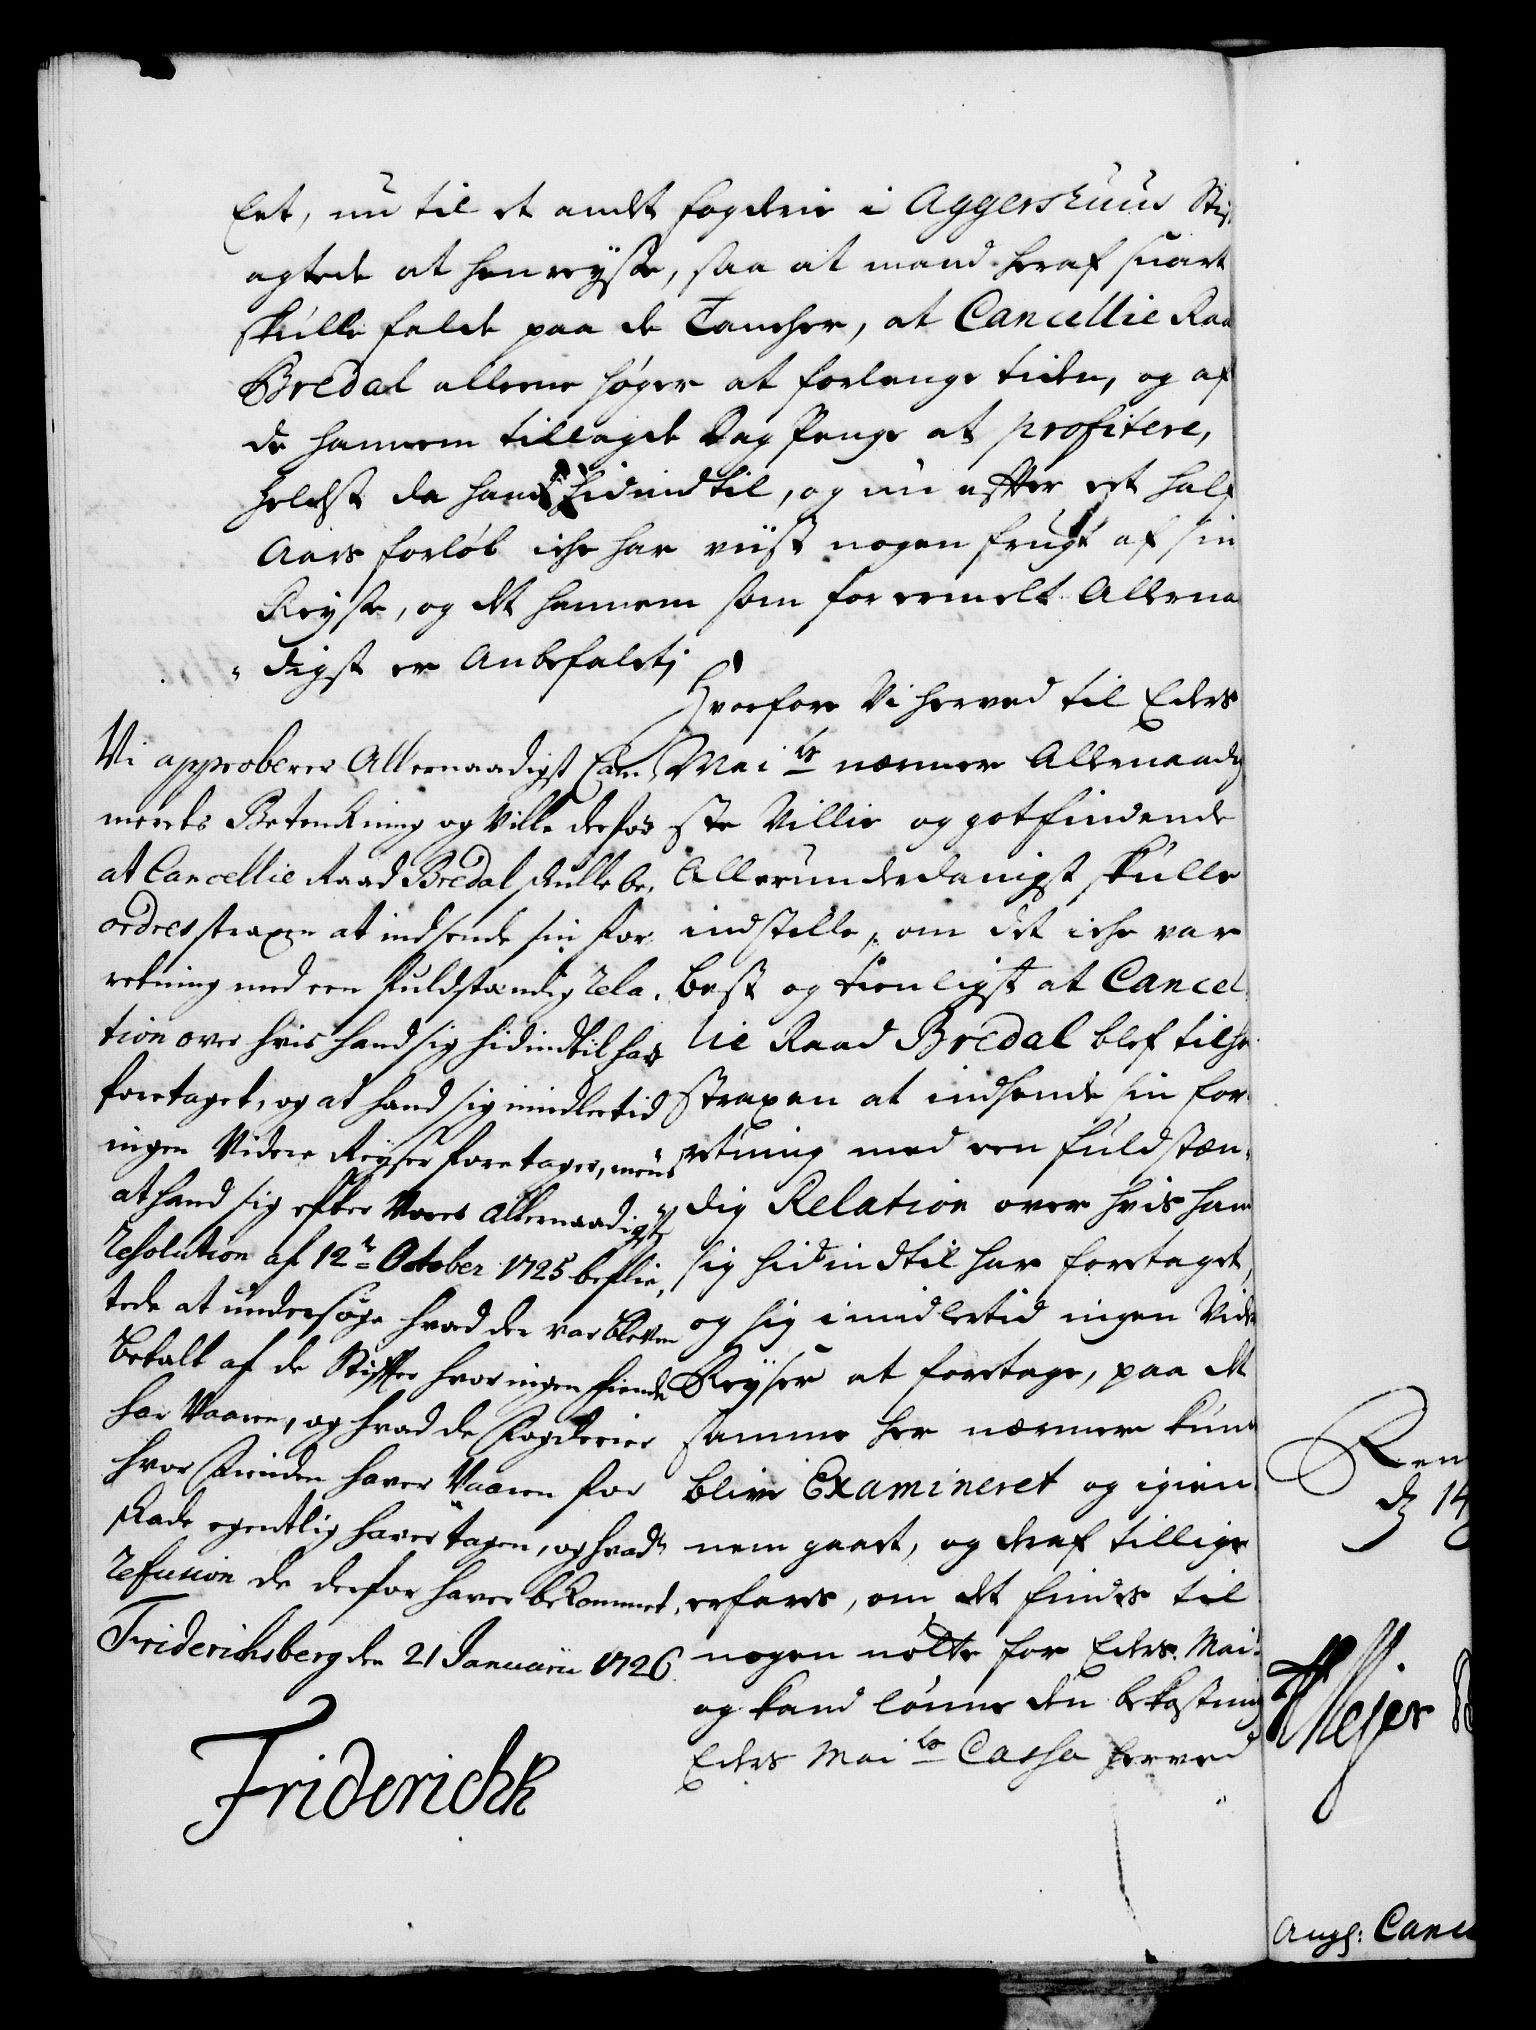 Eet, nu til et andet fogderie i Aggershuus Stif
agtede at henreyse, saa at mand heraf snart
skulle falde paa de Tancher, at Cancellie Raa
Bredal alleene søger at forlenge tiden, og af
de hannem tillagde Dag Penge at profitere,
helst da hand hidindtil, og nu efter et half
Aars forløb iche har viist nogen frugt af sin
Reyse, og det hannem som forermelt Allerna
digst er Anbefalet;
Hvorfore Vi herved til Eders
Mai ts nærmere Allernaadig
ste Villie og gotfindende
Allerunderdanigst skulle
indstille, om det iche var
best og tienligst at Cancel
lie Raad Bredal blef tilho
straxen at indsende sin for
retning med een fuldstæn
dig Relation over hvis han
sig hidindtil har foretaget,
og sig imidlertid ingen Vide
Reyser at foretage, paa det
samme her nærmere kunde
blive Examineret og igien
nem gaaet, og deraf tillige
erfares, om det findes til
nogen nøtte for Eders Mai
og kand lønne den bekostning
Eders Mai ts Cassa herved
Vi approberer Allernaadigst Cam
merets Betenkning og Ville derfor
at Cancellie Raad Bredal skulle be
ordres straxen at indsende sin for
retning med een fuldstændig Rela
tion over hvis hand sig hidindtil har
foretaget, og at hand sig imidlertid
ingen Videre Reyser foretager, mens
at hand sig efter Vores Allernaadigste
Resolution af 12te October 1725 beflie
tede at undersøge hvad der var bleven
betalt af de Stifter hvor ingen fiende
har Vaaren, og hvad de Fogderier
hvor Fienden haver Vaaren for
skade egentlig haver tagen, og hvad
Refusion de derfor haver bekommet.
Friderichsberg den 21 Januarii 1726
Friderich R
Ren
d 14
Meyer
Angl: Canc